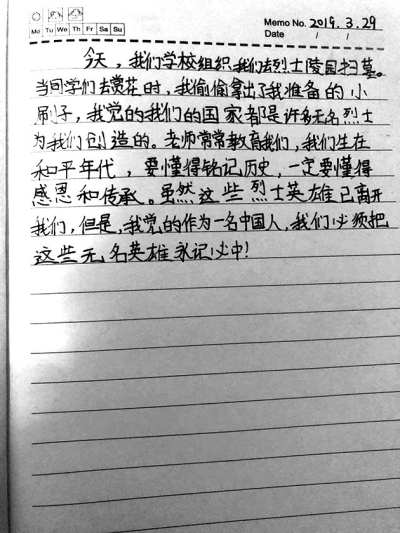 Memo No. 2019.3.29
Mo Tu We Th Fr Sa Su
Date / /
今天,我们学校组织我们去烈士陵园扫墓。
当同学们去赏花时,我偷偷拿出了我准备的小
刷子,我觉的我们的国家都是许多无名烈士
为我们创造的。老师常常教育我们,我们生在
和平年代,要懂得铭记历史,一定要懂得
感恩和传承。虽然这些烈士英雄已离开
我们,但是,我觉的作为一名中国人,我们必须把
这些无名英雄永记心中!